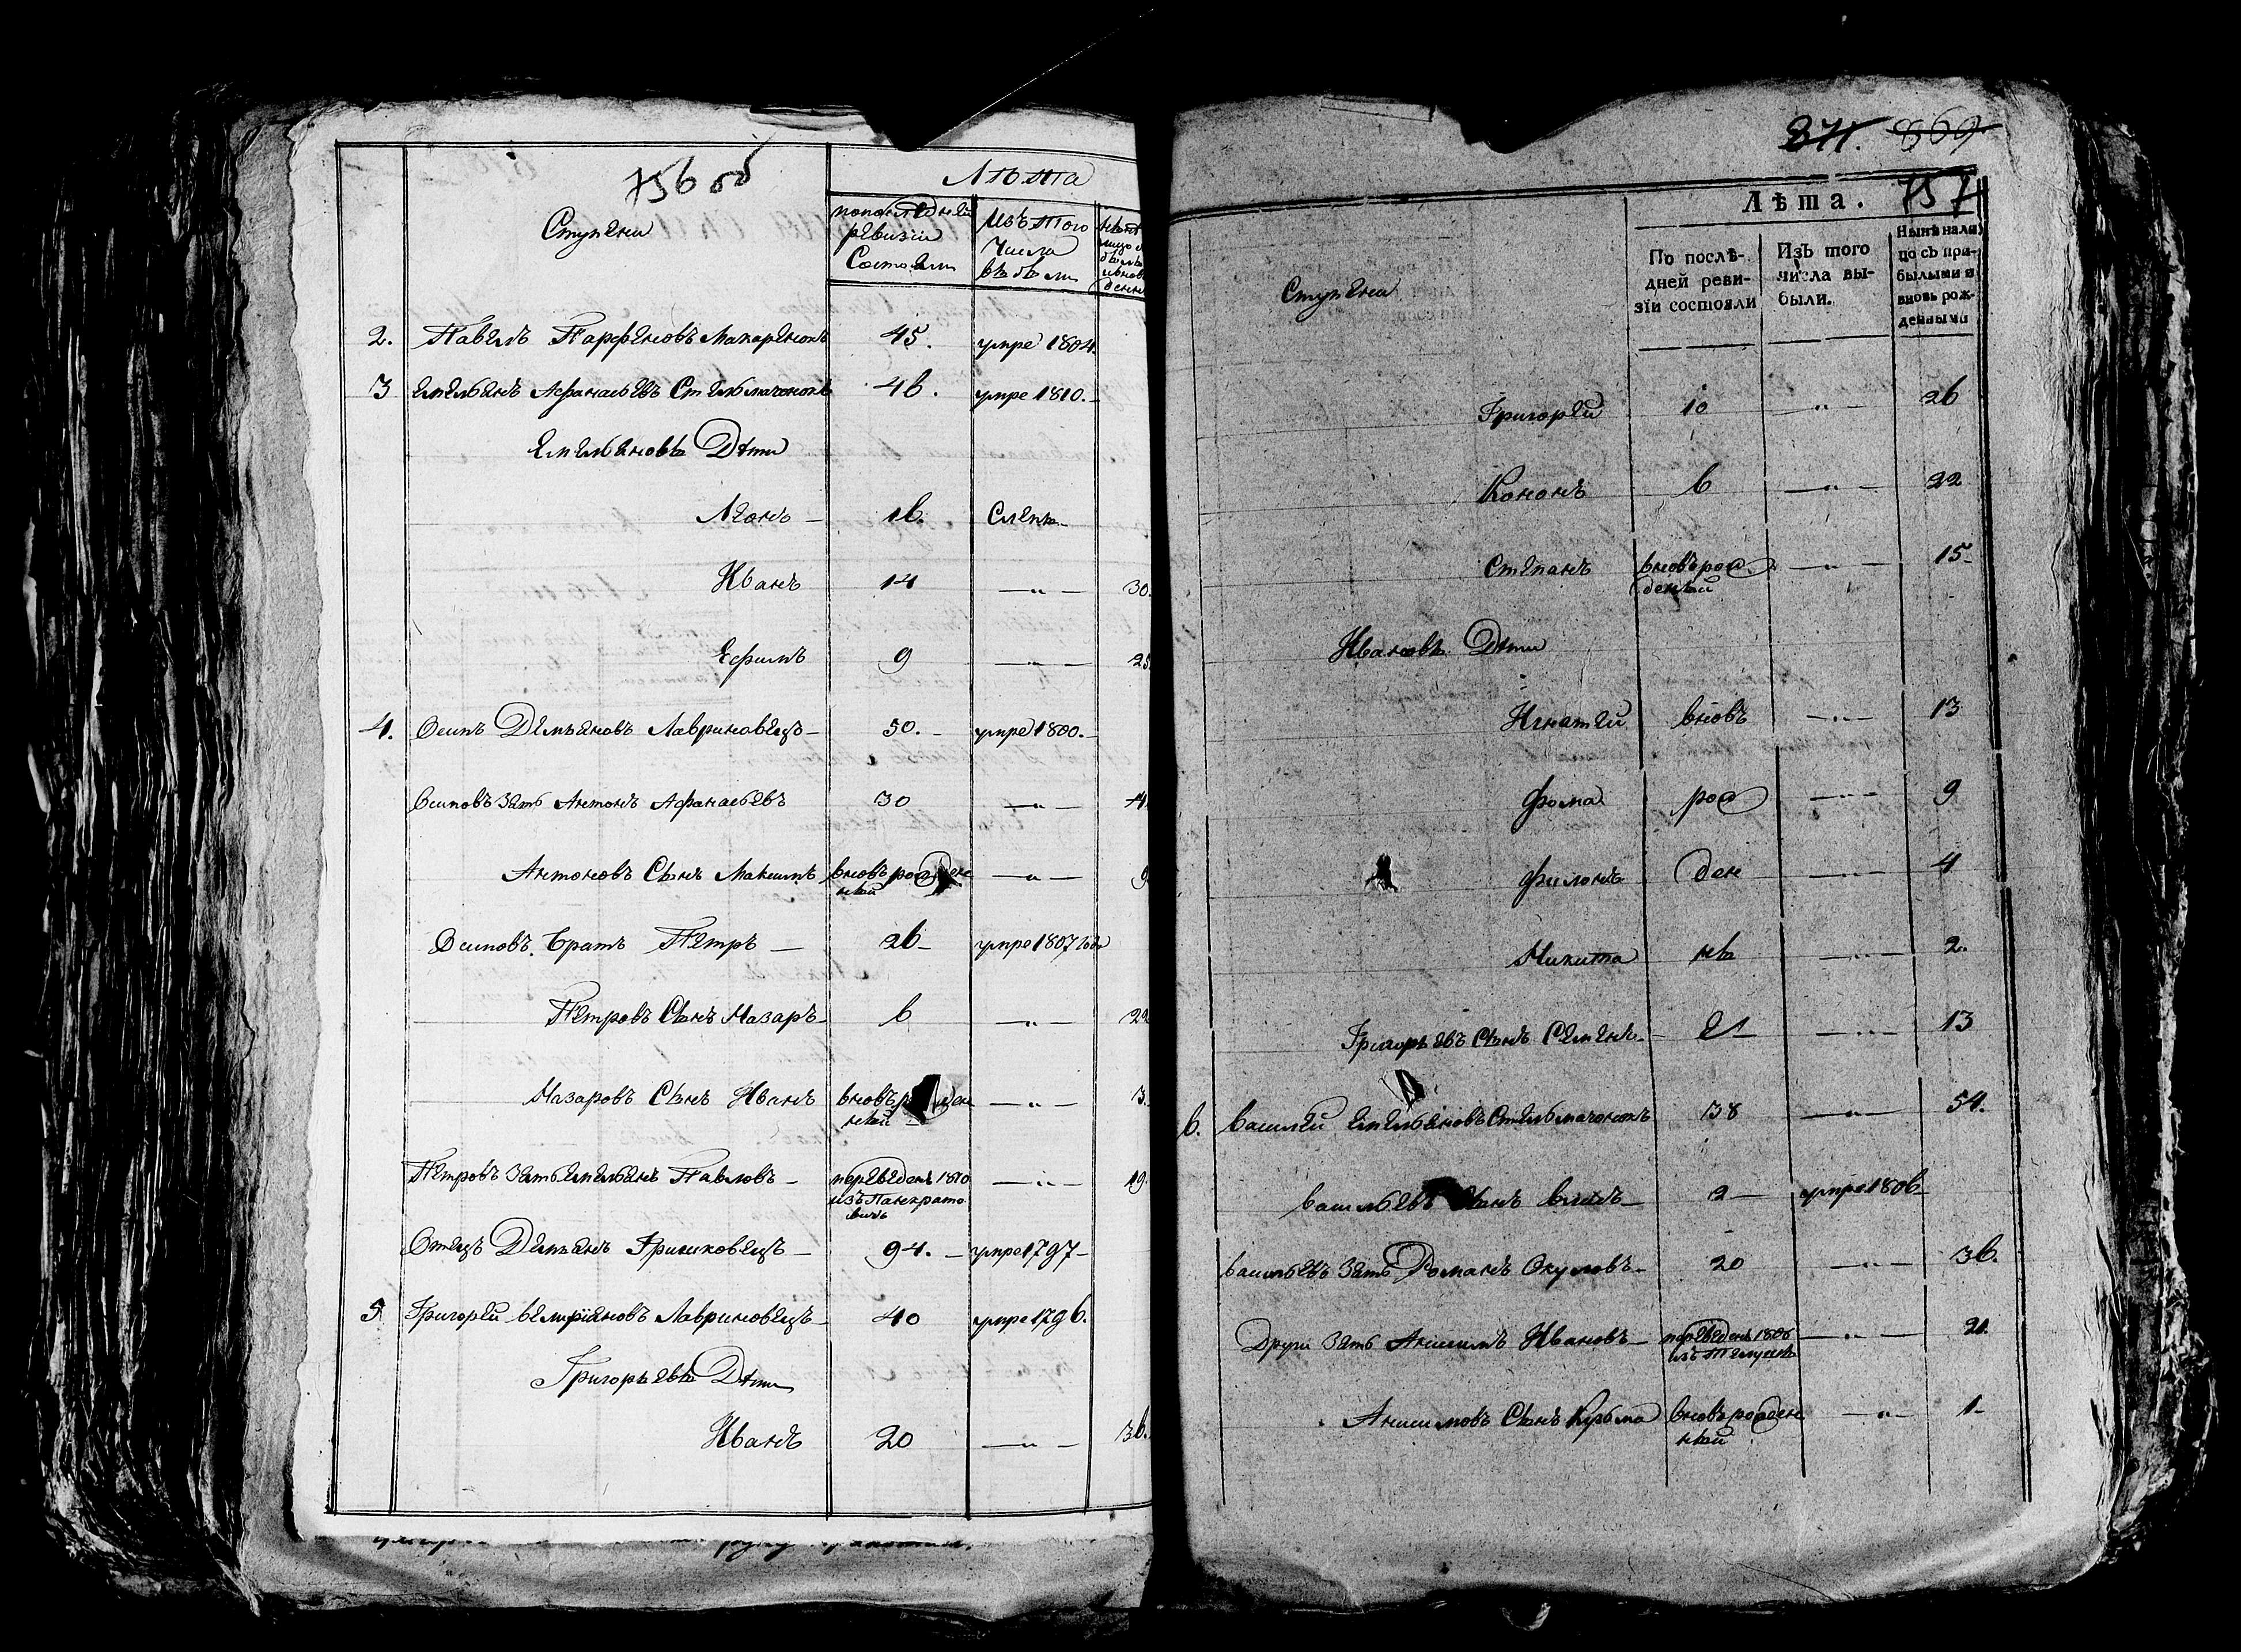 756 об
Лѣта
Ступени
попоследней ревизии Состояли
Изъ того Числа выбыли
2. Павелъ Парфеновъ Макаренокъ 45. умре 1804.
3 Емельянъ Афанасьевъ Стельмаченокъ 46. умре 1810.
Емельяновы Дѣти
Леонъ 16. Слепъ
Иванъ 14 — „ — 30.
Ефимъ 9 — „ — 25
4. Осипъ Демьяновъ Лавриновецъ 50. умре 1800.
Осиповъ Зять Антонъ Афанасьевъ 30 — „ —
Антоновъ Сынъ Максимъ вновьрожденный — „ — 9
Осиповъ братъ Петръ — 26 умре 1807 года
Петровъ Сынъ Назаръ 6 — „ — 22
Назаровъ Сынъ Иванъ вновьрожденный — „ — 3.
Петровъ Зять Емельянъ Павловъ — переведенъ 1810 изъ — „ — 19.
Отецъ Демьянъ 94. умре 1797
5 Григорей Лавриновецъ 40 умре 1796.
Григорьевы Дѣти
Иванъ 20 — „ — 36.
871. 869
757
Лѣта.
Ступени
По послѣдней ревизіи состояли
Изъ того числа выбыли.
Нынѣ налицо съ прибылыми и вновь рожденными
Григорей 10 — „ — 26
Кононъ 6 — „ — 22
Степанъ вновьрожденный — „ — 15
Ивановы Дѣти
Игнатей вновь — „ — 13
Фома рож — „ — 9
Филонъ ден — „ — 4
Микита ны — „ — 2.
Григорьевъ Сынъ Семенъ е — „ — 13
6. Василей Емельяновъ Стельмаченокъ 38 — „ — 54.
Васильевъ Сынъ 2 умре 1806
Васильевъ Зять Романъ Окуловъ 20 — „ — 36.
Други Зять Анисимъ Ивановъ переведенъ 1806 изъ — „ — 21.
Анисимовъ Сынъ Кузьма вновьрожденный — „ — 1